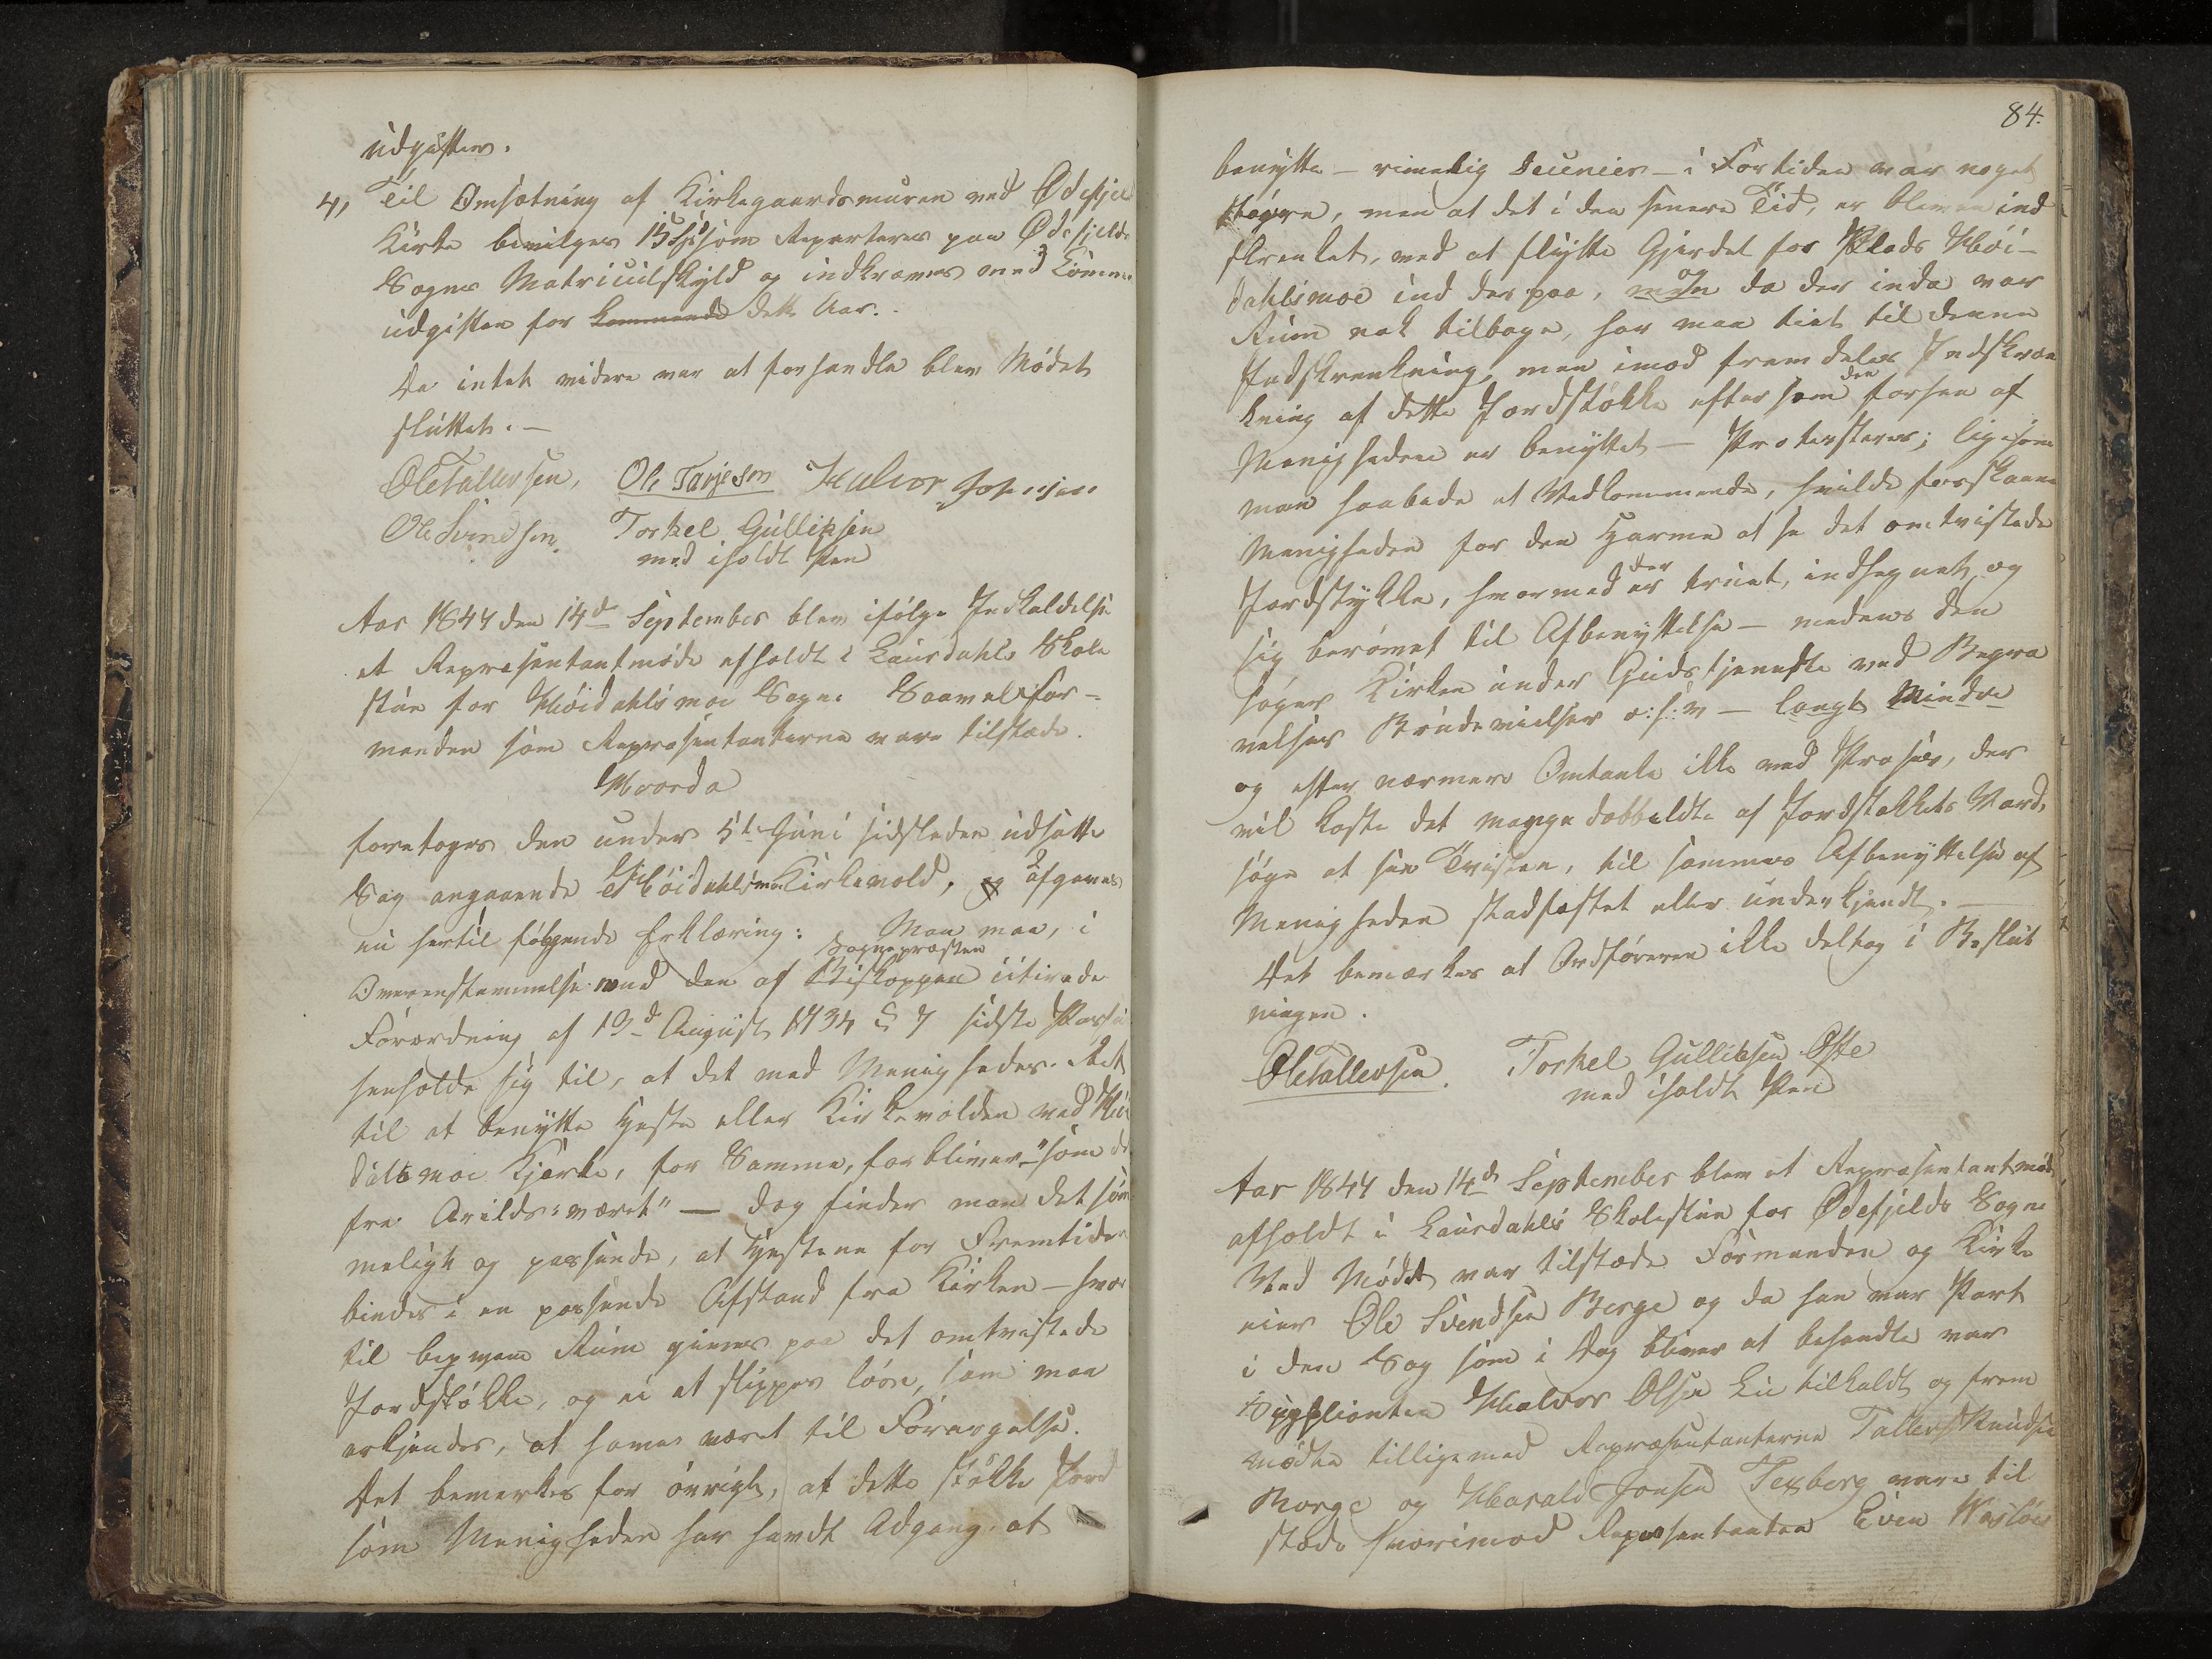 udgifter.
4, Til Omsætning af Kirkegaardsmuren ved Ødefjel
Kirke bevilges 15 som Reparteres paa Ødefjelds
Sogns Matriculskyld og indkræves med Komm
udgiften for kommende dette Aar.
Da intet videre var at forhandle blev Mødet
sluttet. —
Ole Tallevsen, Ole Tarjeson Halvor Johnsen
Ole Svendsen, Torkel Gulliksen
med iholdt Pen
Aar 1844 den 14de September blev ifølge Indkaldelse
et Repræsentantmøde afholdt i Laurdahls Skole
stue for Høidahlsmoe Sogn. Saavel For-
manden som Repræsentanterne vare tilstæde.
Hvorda
foretoges den under 5te Juni sidstleden udsatte
Sag angaaende Høidahlsmoe Kirkevold, og afgaves
nu hertil følgende Erklæring: Man maa, i
Overenstemmelse med den af Biskoppen Sognepræsten citirede
Forordning af 19de August 1734 § 7 sidste Passu
henholde sig til, at det med Menighedes Ret
til at benytte Heste eller Kirkevolden ved Høi
dalsmoe Kjerke, for Samme, forbliver "som d
fra Arilds: været" — dog finder man det søm
meligt og passende, at Hestene for Fremtiden
bindes i en passende Afstand fra Kirken — hvor
til beqvem Rum gives paa det omtvistede
Jordstøkke, og ei at slippes løse, som man
erkjender, at have været til Forargelse.
Det bemerkes for øvrigt, at dette støkke Jord
som Menigheden har havdt Adgang at
84.
benytte — rimelig — i Fortiden var noget
større, men at det i den senere Tid, er bleven ind
skrenket, ved at flytte Gjerdet for Plads Høi-
dahlsmoe ind der paa, men da der inda var
Rum nok tilbage, har man tiet til denne
Indskrenkning, men imod fremdeles Indskræn
kning af dette Jordstøkke eftersom den forhen af
Menigheden er benyttet — Protesteres; ligesom
man haabede at Vedkommende, skulde forskaane
Menigheden for den Harme at se det omtvistede
Jordstykke, hvormed der er truet, indhegnet og
sig berømet til Afbenyttelse — medens den
søger Kirken under Gudstjeneste ved Begra
velser Brudevielser o: s: v — langt Mindre
og efter nærmere Omtanke ikke med Proses, der
vil koste det mange dobbeldte af Jordstøkkets Værd,
søge at see Tvisten, til sammes Afbenyttelse af
Menigheden stadfæstet eller underkjendt. —
Det bemærkes at Ordføreren ikke deltog i Beslut
ningen.
Ole Tallevsen. Torkel Gulliksen Ofte
med iholdt Pen
Aar 1844 den 14de September blev et Repræsentantmøde
afholdt i Laurdahls Skolestue for Ødefjelds Sogn
Ved Mødet var tilstæde Formanden og Kirke
eier Ole Svendsen Berge og da han var Part
i den Sag som i Dag bliver at behandle var
Supplianten Halvor Olsen Lie tilkaldt og frem
mødte tilligemed Repræsentanterne Tallev Knudsen
Berge og Harald Jonsen Texberg vare til
stæde hvorimod Repræsentanten Even